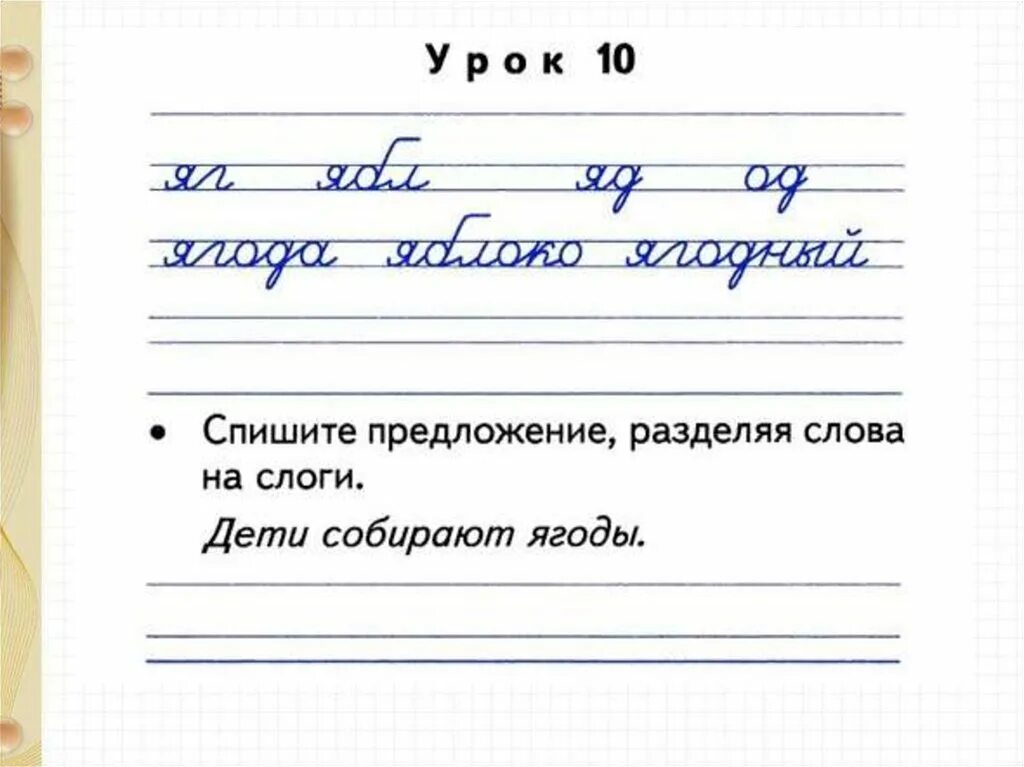 Урок 10
яг ябл яд од
ягода яблоко ягодный
• Спишите предложение, разделяя слова
на слоги.
Дети собирают ягоды.